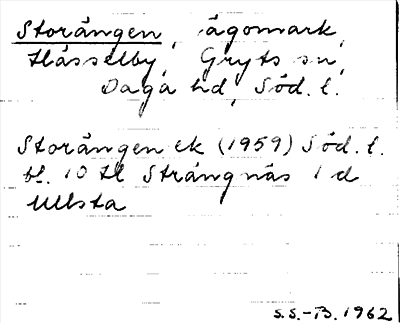 Storängen, ägomark,
Hässelby, Gryts sn,
Daga hd, Söd. l.
Storängen ek (1959) Söd. l.
bl. 10 tl Strängnäs 1 d
Ullsta
S.S.-B. 1962